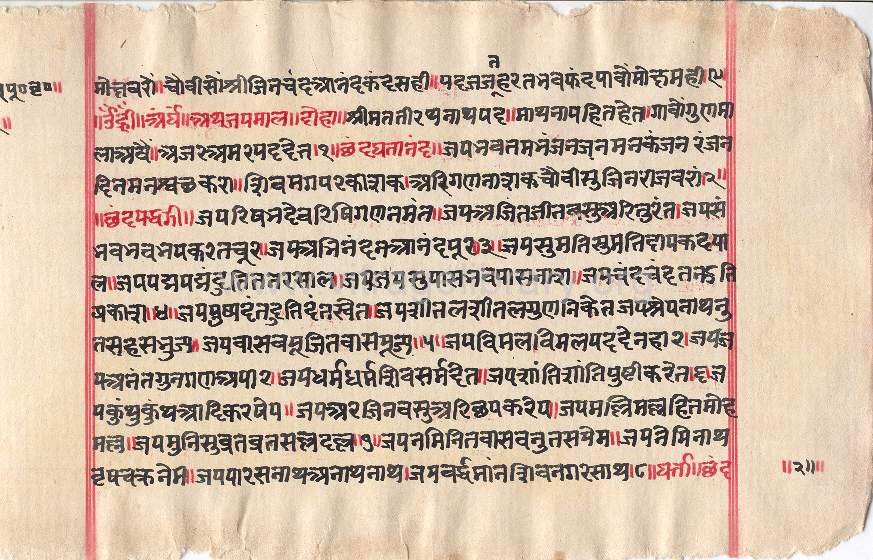 मोक्षवरों॥चौवीसौंश्रीजिनचंदआनंदकंदसही॥पदजजतहरतभवफंदपावौंमोक्षमही॥९
॥ॐह्रीं॥अर्घ॥अथजयमाल॥दोहा॥श्रीमततीरथनाथपद॥माथनायहितहेत॥गावौगुणमा
लाअवै॥अजरअमरपददेत॥१॥छंदघतानंद॥जयभवतमभंजनजनमनकंजनरंजन
दिनमनस्वछकरा॥शिवमगपरकाशक॥अरिगणनाशकचौवीसुजिनराजवरा॥२॥
॥छंदपद्धरी॥जयरिषभदेवरिषिगणनमंत॥जयअजितजीतवसुअरितुरंत॥जयसं
भवभवभयकरतचूर॥जयअभिनंदनआनंदपूर॥३॥जयसुमतिसुमतिदायकदया
ल॥जयपद्मपद्मदुतितनरसाल॥जयजयसुपासभवपासनाश॥जयचंदचंदतनदुति
प्रकाश॥४॥जयपुष्पदंतदुतिदंतस्वेत॥जयशीतलशीतलगुणनिकेतजयश्रेयनाथनु
तसहसभुज्ज॥जयवासवपूजितवासपूज्य॥५॥जयविमलविमलपददेनहार॥जयज
यअनंतगुनगणअपार॥जयधर्मधर्मशिवसर्मदेत॥जयशांतिशांतिपुष्टीकरेत॥६॥ज
यकुंथुकुंथुआदिकरषेय॥जयअरजिनवसुअरिछयकरेय॥जयमल्लिमल्लहितमोह
मल्ल॥जयमुनिसुव्रतव्रतसल्लदल्ल॥७॥जयनमिनितवासवनुतसपेम॥जयनेमिनाथ
वृषचक्रनेम॥जयपारसनाथअनाथनाथ॥जयवर्द्धमांनशिवनगरसाथ॥८॥घत्ता॥छंद
॥२॥